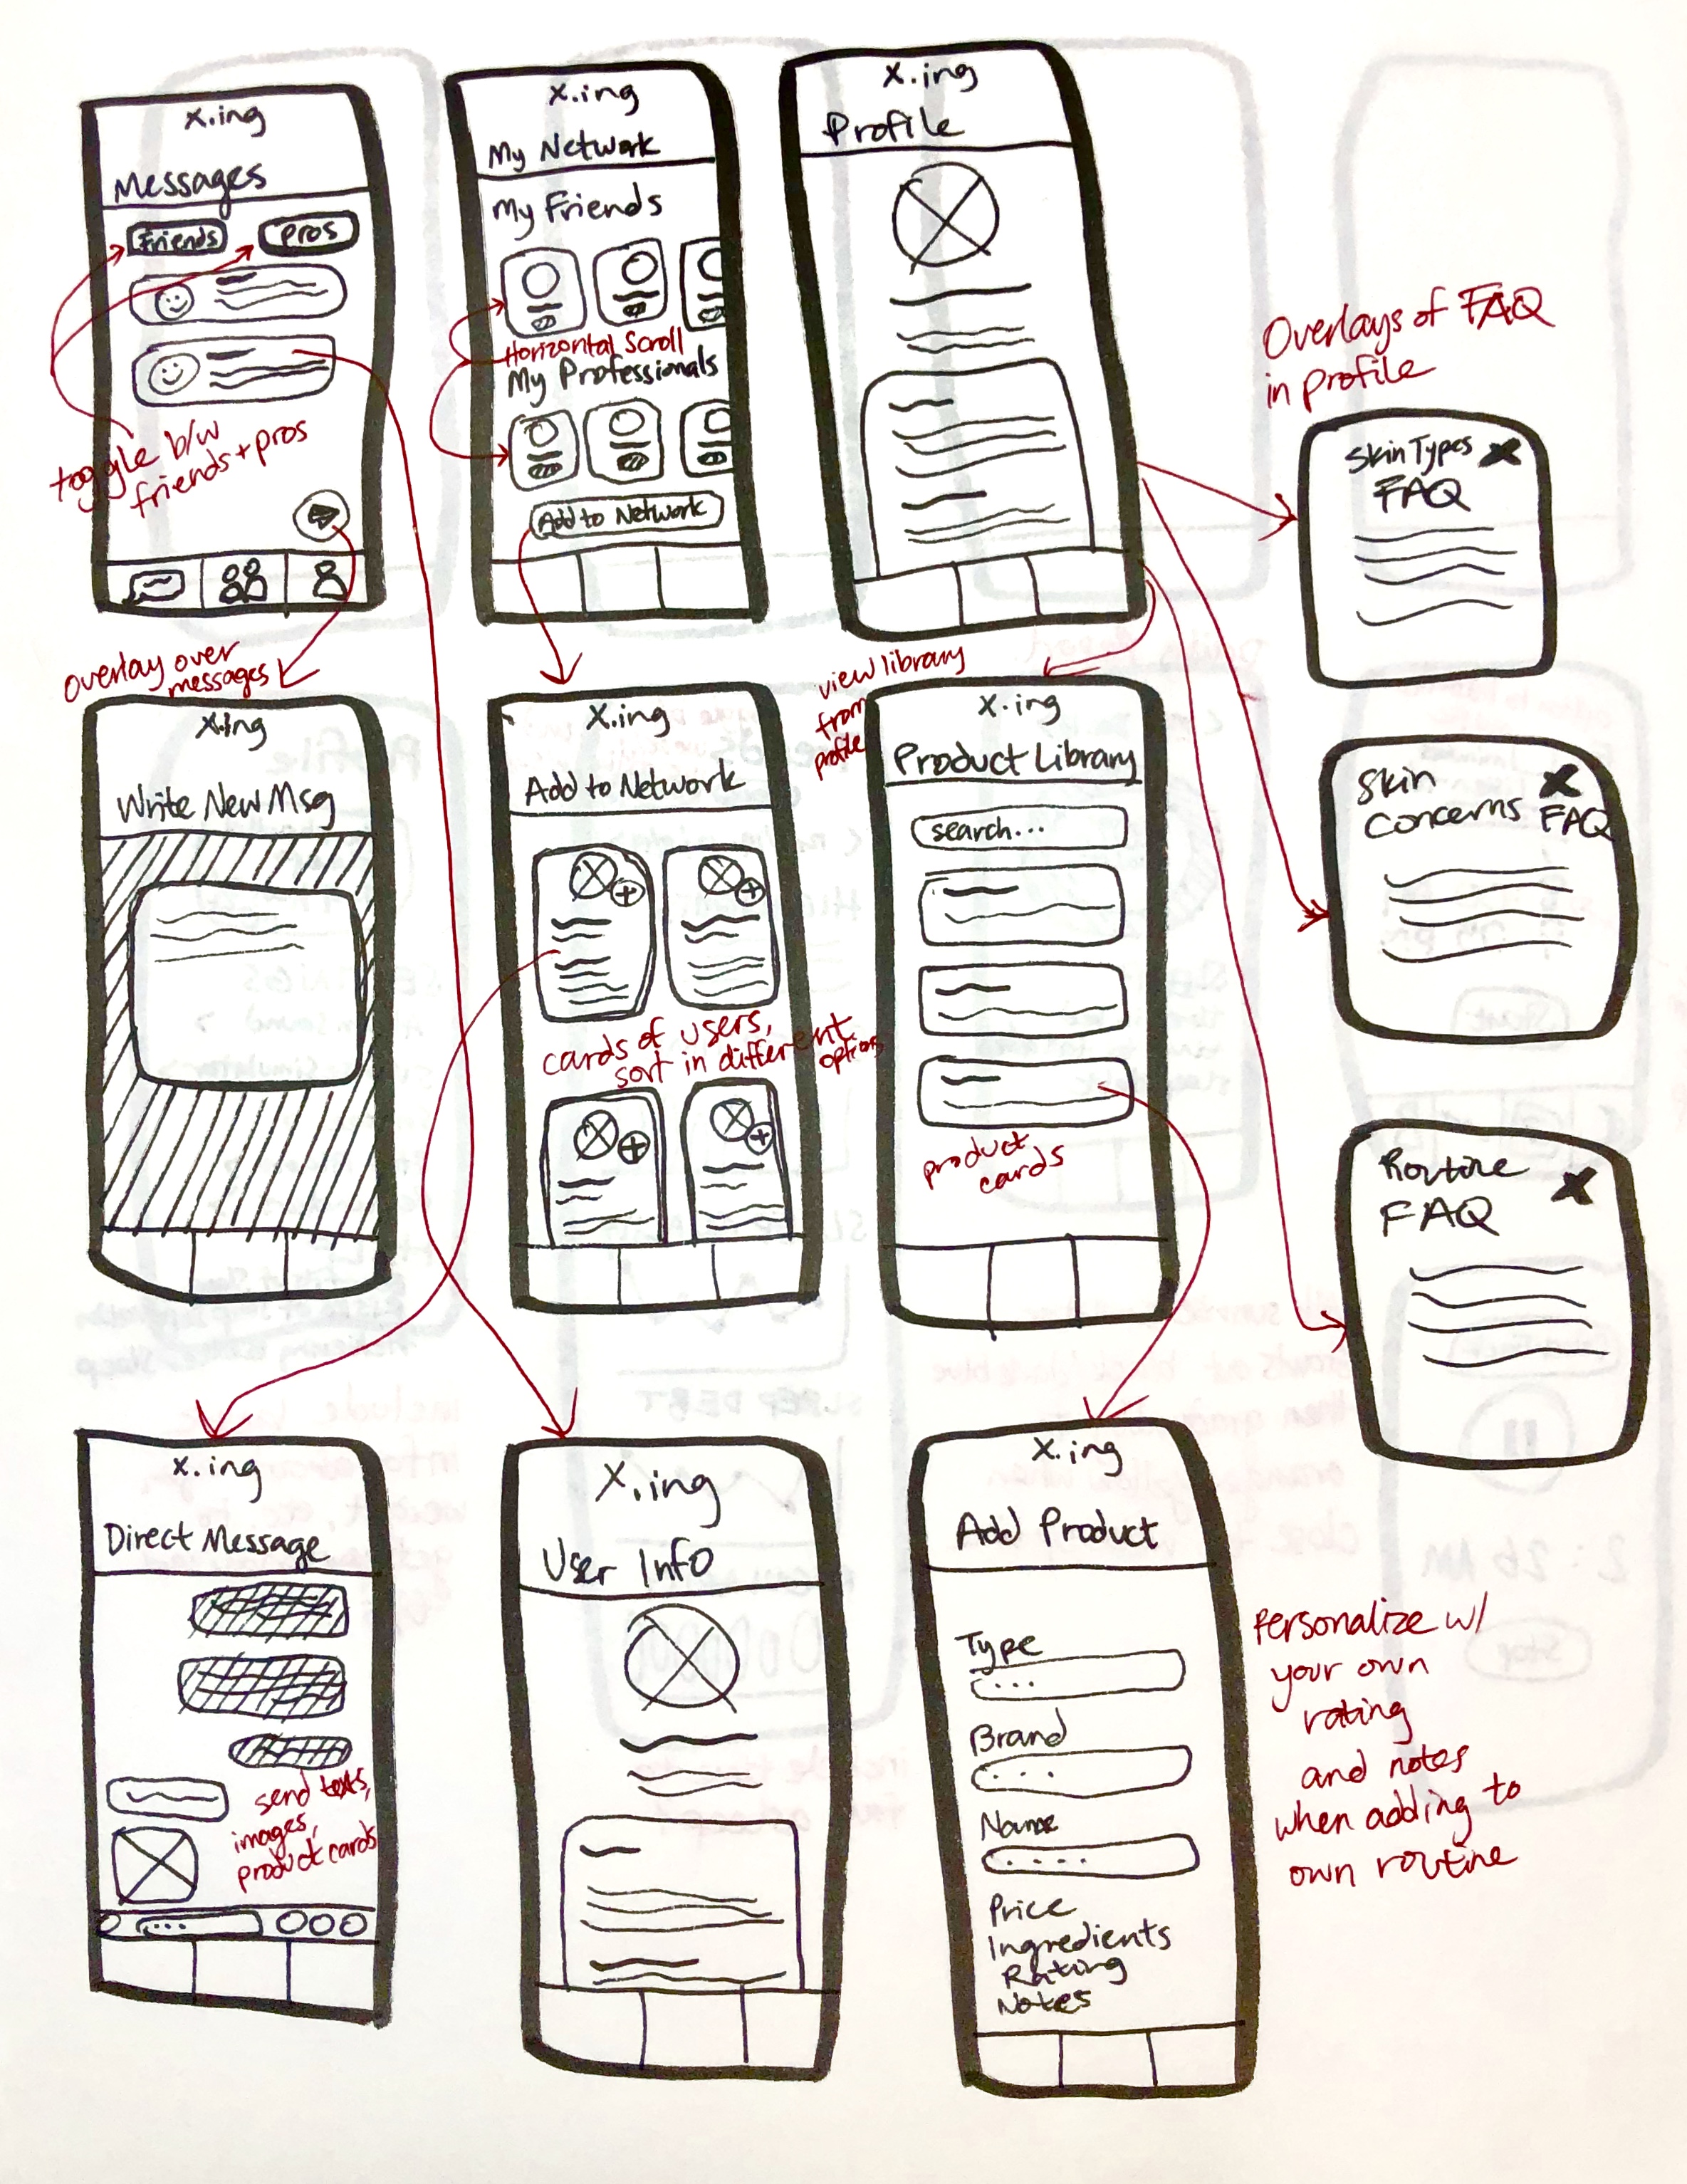 x.ing
Messages
Friends
pros
toggle b/w
friends + pros
x.ing
My Network
My Friends
Horizontal Scroll
My Professionals
Add to Network
x.ing
Profile
Overlays of FAQ
in profile
Skin Types
FAQ
Skin
Concerns FAQ
Routine
FAQ
overlay over
messages
x.ing
Write New Msg
x.ing
Add to Network
cards of users,
sort in different
options
view library
from
profile
x.ing
Product Library
search...
product
cards
x.ing
Direct Message
send texts,
images,
product cards
x.ing
User Info
x.ing
Add Product
Type
...
Brand
...
Name
....
Price
Ingredients
Rating
Notes
Personalize w/
your own
rating
and notes
when adding to
own routine